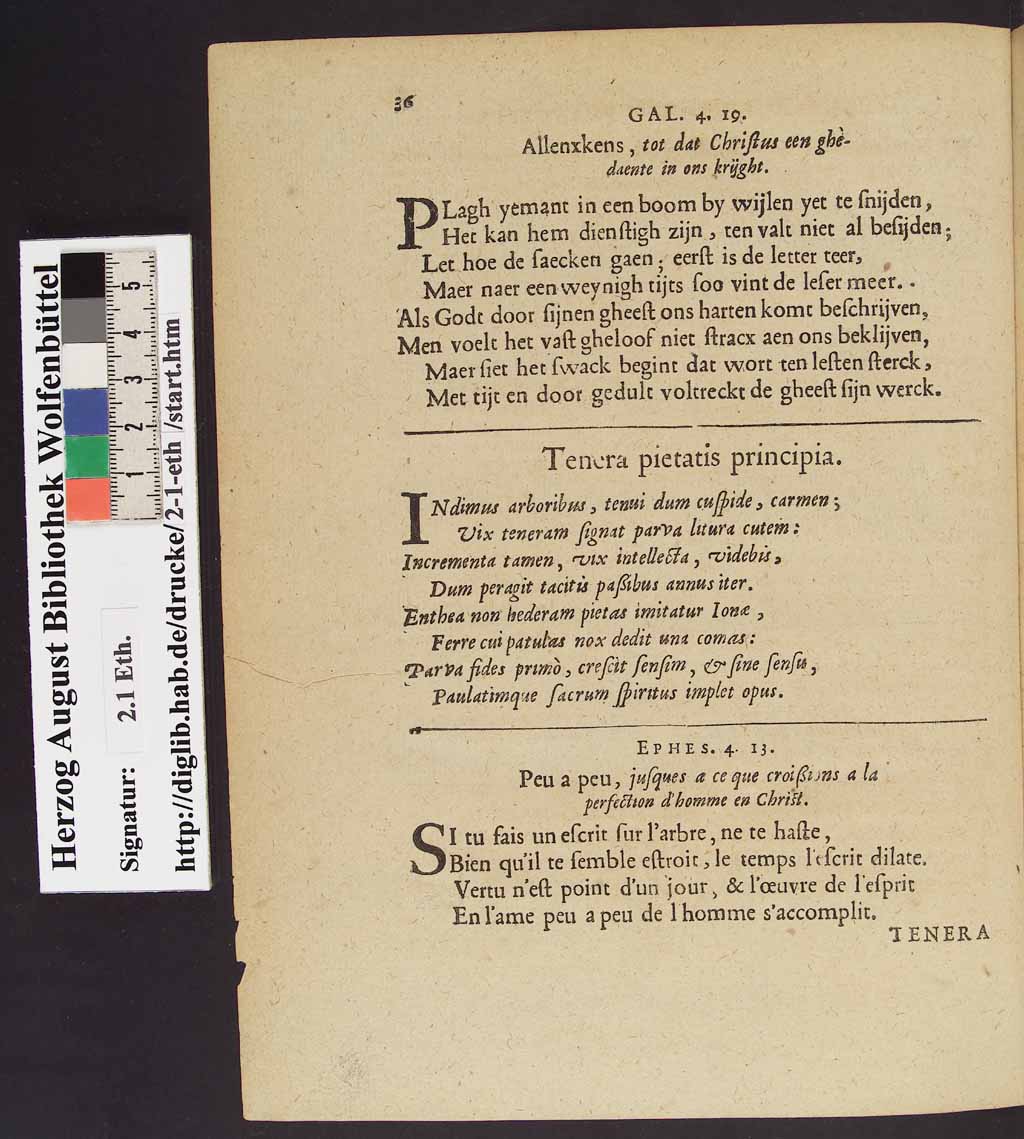 36
GAL. 4. 19.
Allenxkens, tot dat Chriſtus een ghè-
daente in ons krijght.
PLagh yemant in een boom by wijlen yet te ſnijden,
Het kan hem dienſtigh zijn, ten valt niet al beſijden;
Let hoe de ſaecken gaen; eerſt is de letter teer,
Maer naer een weynigh tijts ſoo vint de leſer meer.
Als Godt door ſijnen gheeſt ons harten komt beſchrijven,
Men voelt het vaſt gheloof niet ſtracx aen ons beklijven,
Maer ſiet het ſwack begint dat wort ten leſten ſterck,
Met tijt en door gedult voltreckt de gheeſt ſijn werck.
Tenera pietatis principia.
INdimus arboribus, tenui dum cuſpide, carmen;
Vix teneram ſignat parva litura cutem:
Incrementa tamen, vix intellecta, videbis,
Dum peragit tacitis paßibus annus iter.
Enthea non hederam pietas imitatur Ionæ,
Ferre cui patulas nox dedit una comas:
Parva fides primò, creſcit ſenſim, & ſine ſenſu,
Paulatimque ſacrum ſpiritus implet opus.
EPHES. 4. 13.
Peu a peu, juſques a ce que croißions a la
perfection d'homme en Chriſt.
SI tu fais un eſcrit ſur l'arbre, ne te haſte,
Bien qu'il te ſemble eſtroit, le temps l'eſcrit dilate.
Vertu n'eſt point d'un jour, & l'œuvre de l'eſprit
En l'ame peu a peu de l'homme s'accomplit.
TENERA
Herzog August Bibliothek Wolfenbüttel
Signatur: 2.1 Eth.
http://diglib.hab.de/drucke/2-1-eth /start.htm
1 2 3 4 5